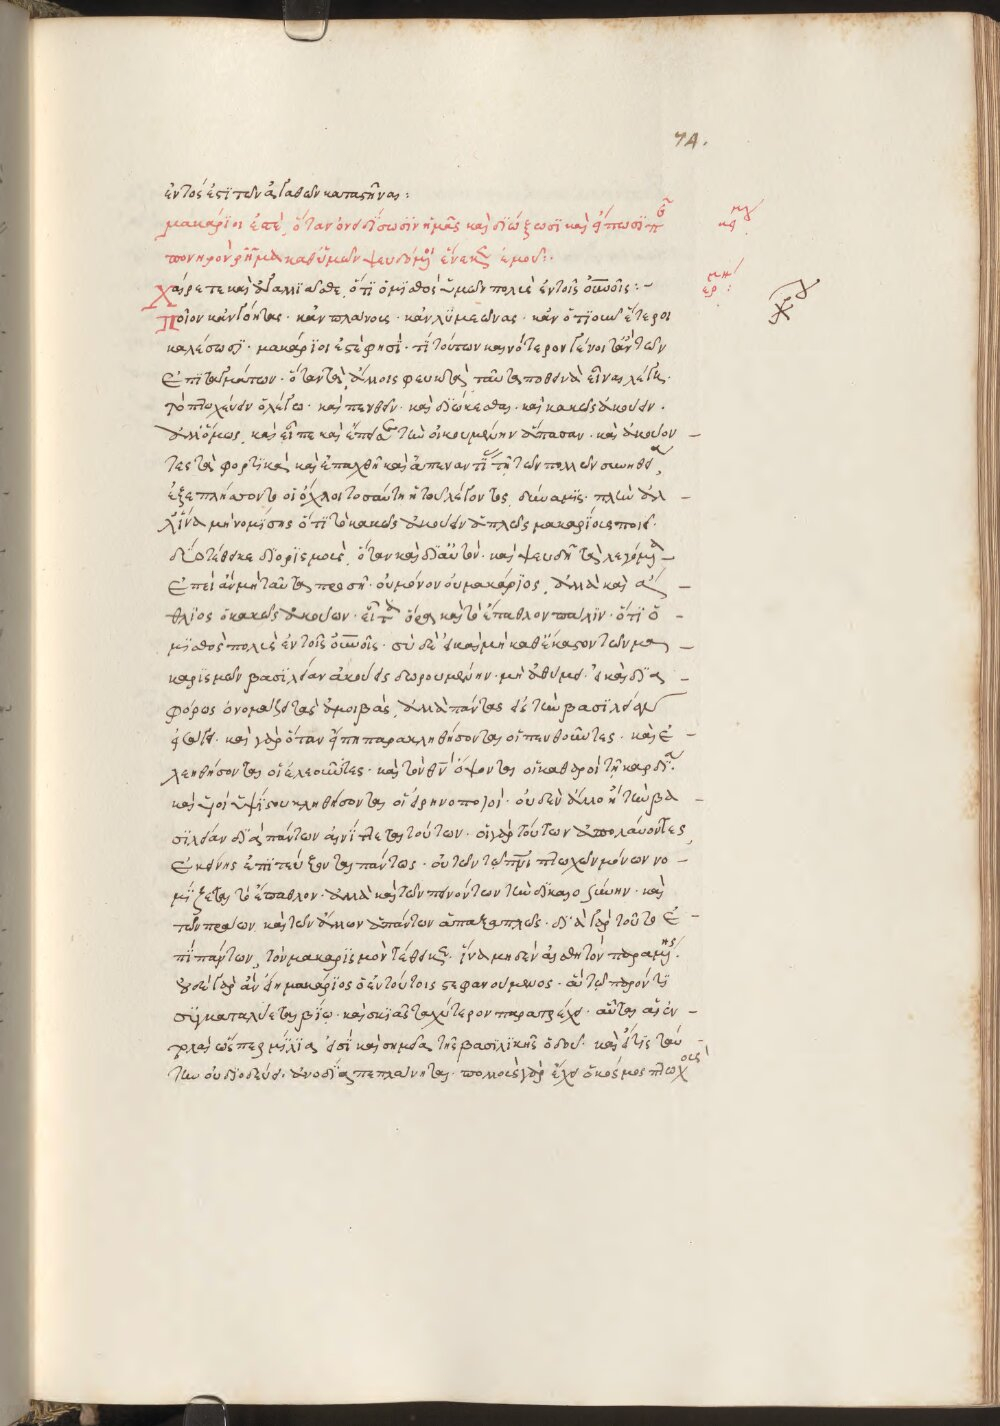 74.
ἐντός ἐστι τῶν ἀγαθῶν καταστῆναι:
μακάριοί ἐστε, ὅταν ὀνειδίσωσιν ἡμᾶς καὶ διώξωσι καὶ εἴπωσι π
πονηρὸν ῥῆμα καθ' ὑμῶν ψευδόμενοι ἕνεκεν ἐμοῦ:
Χαίρετε καὶ ἀγαλλιᾶσθε, ὅτι ὁ μισθὸς ὑμῶν πολὺς ἐν τοῖς οὐνοῖς:
Ποῖον κἂν γόητας· κἂν πλάνους· κἂν λυμεῶνας· κἂν ὁτιοῦν ἕτεροι
καλέσωσι· μακάριοί ἐστέ φησι· τί τούτων καινότερον γένοιτ' ἂν τῶν
ἐπιταγμάτων· ὅταν τὰ ἄλλοις φευκτὰ, ταῦτα ποθεινὰ εἶναι λέγῃ·
τὸ πτωχεύειν λέγω· καὶ πενθεῖν· καὶ διώκεσθαι· καὶ κακῶς ἀκούειν·
ἀλλ' ὅμως, καὶ εἶπε καὶ ἔπεισε τὴν οἰκουμένην ἅπασαν· καὶ ἀκούον
τες τὰ φορτικὰ καὶ ἐπαχθῆ καὶ ἀπεναντί τῇ τῶν πολλῶν συνηθεία,
ἐξεπλήσσοντο οἱ ὄχλοι τοσαύτη ἡ τοῦ λέγοντος δύναμις· πλὴν ἀλ
λ' ἵνα μὴ νομίσῃς ὅτι τὸ κακῶς ἀκούειν ἁπλῶς μακαρίους ποιεῖ·
δύο τέθεικε διορισμοὺς, ὅταν καὶ δι' αὐτόν· καὶ ψευδῆ τὰ λεγόμενα
ἐπεὶ ἂν μὴ ταῦτα προσῇ· οὐ μόνον οὐ μακάριος, ἀλλὰ καὶ ἄ
θλιος ὁ κακῶς ἀκούων· εἶτα ὅρα καὶ τὸ ἔπαθλον πάλιν· ὅτι ὁ
μισθὸς πολὺς ἐν τοῖς οὐνοῖς· σὺ δὲ εἰ καὶ μὴ καθ' ἕκαστον τῶν μα
καρισμῶν βασιλείαν ἀκούεις δωρουμένην· μὴ ἀθύμει· εἰ καὶ δια
φόρως ὀνομάζει τὰς ἀμοιβὰς, ἀλλὰ πάντας εἰς τὴν βασιλείαν
εἰσάγει· καὶ γὰρ ὅταν εἴπῃ παρακληθήσονται οἱ πενθοῦντες· καὶ ἐ
λεηθήσονται οἱ ἐλεοῦντες· καὶ τὸν θν ὄψονται οἱ καθαροὶ τῇ καρδίᾳ·
καὶ υἱοὶ ὑψίστου κληθήσονται οἱ εἰρηνοποιοί· οὐδὲν ἄλλο ἢ τὴν βα
σιλείαν διὰ πάντων αἰνίττεται τούτων· οἱ γὰρ τούτων ἀπολαύοντες,
ἐκείνης ἐπιτεύξονται πάντως·
μίζεται τὸ ἔπαθλον· ἀλλὰ καὶ τῶν πεινόντων τὴν δικαιοσύνην· καὶ
τῶν πραέων καὶ τῶν ἄλλων ἁπάντων ἁπαξαπλῶς· διὰ γὰρ τοῦτο ἐ
πὶ πάντων, τὸν μακαρισμὸν τέθεικεν· ἵνα μηδὲν αἰσθητὸν παραμένῃς·
οὐδὲ γὰρ ἂν εἴη μακάριος ὁ ἐν τούτοις στεφανούμενος· ἃ τῷ παρόντι
συγκαταλύεται βίῳ· καὶ σκιᾶς ταχύτερον παρατρέχει· αὗται αἱ ἐν
τολαὶ ὥσπερ μίλιά εἰσι καὶ σημεῖα τῆς βασιλικῆς ὁδοῦ· καὶ εἴ τις ταύ
την οὐ διοδεύει· ἀνοδίαις πεπλάνηται· πολλοὺς γὰρ ἔχει ὁ κόσμος πτωχοὺς